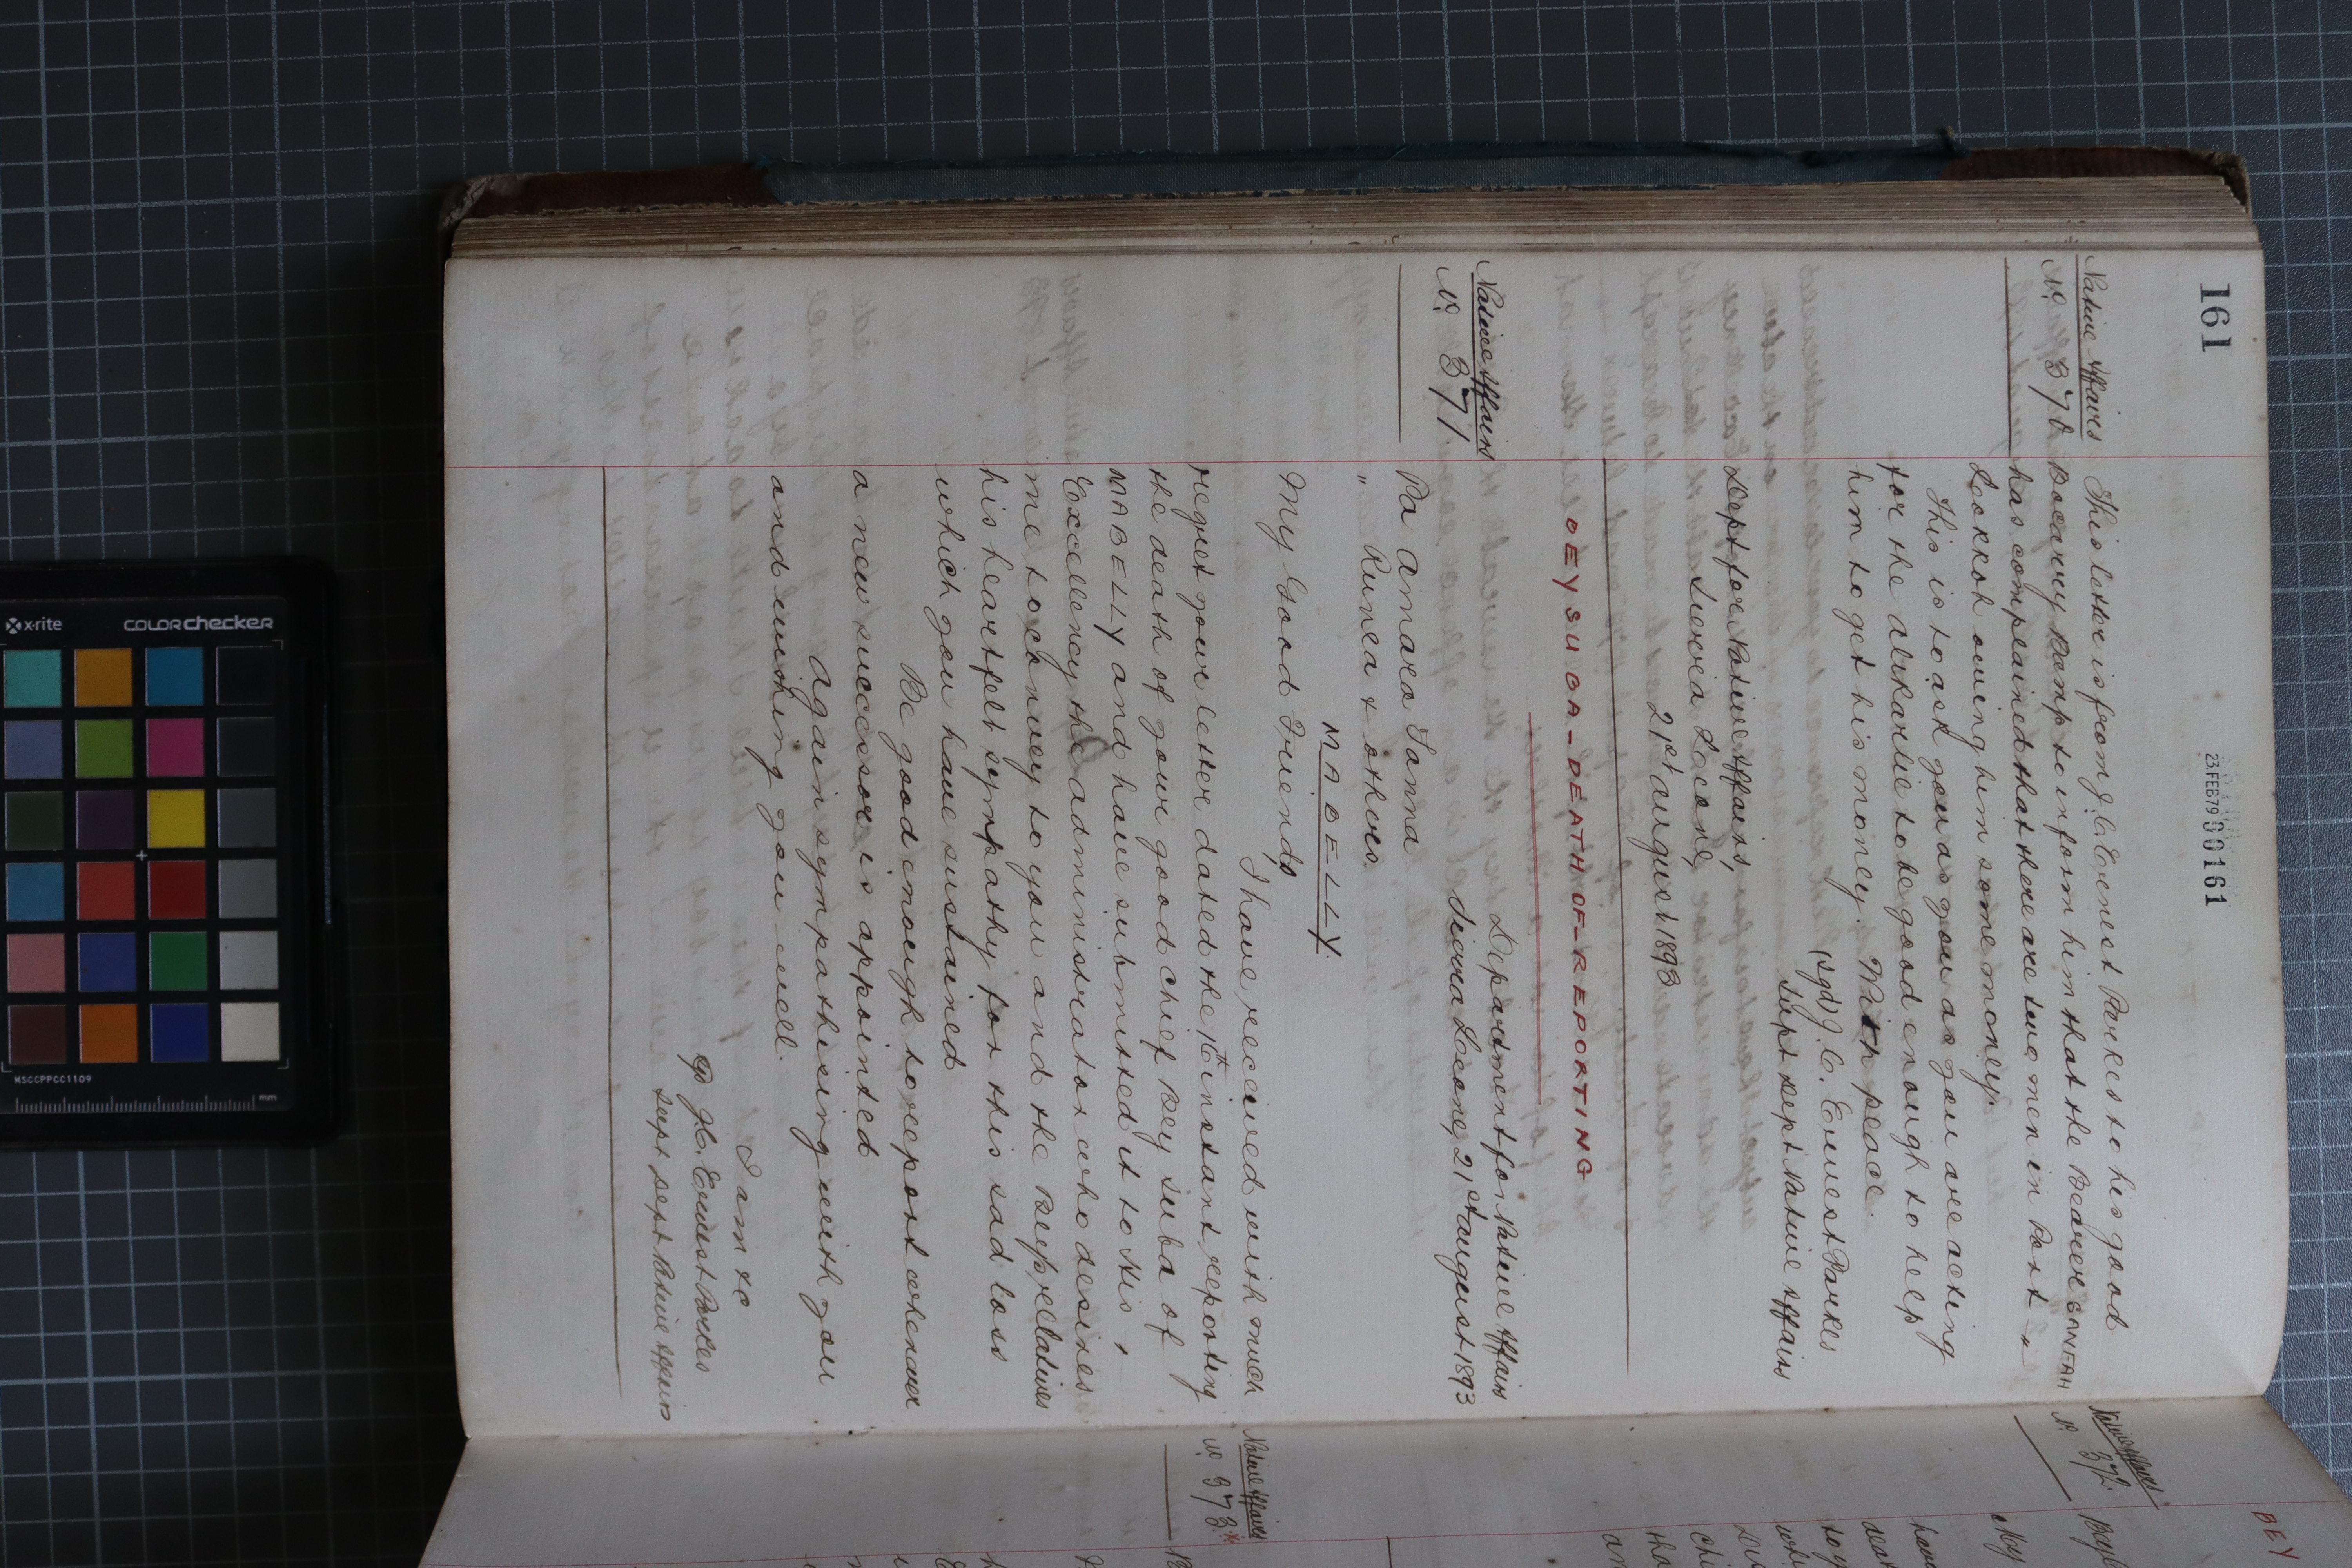 161
23.FEB79 00161
Native Affairs
No. 370
This letter is from J. C. Ernest Parkes to his good
Bocarry Bomp to inform him that the Bearer SANFAH
has complained that there are two men in Port
Lokkoh owing him some money.
This is to ask you as you as you are acting
for the Alikarlie to be good enough to help
him to get his money. With peace.
(sgd) J. C. Ernest Parkes
Supt Dept Native Affairs
Dept for Native Affairs,
Sierra Leone,
21st August 1893
BEY SUBA - DEATH OF - REPORTING
Native Affairs
No. 371
Department for Native Affairs
Sierra Leone, 21st August 1893
Pa Amara Sanna
" Runea & others.
MABELLY.
My Good Friends,
I have received with much
regret your letter dated the 16th instant reporting
the death of your good chief Bey Suba of
MABELLY and have submitted it to His
Excellency the Administrator who desires
me to convey to you and the Bey's relatives
his heartfelt sympathy for this sad loss
which you have sustained
Be good enough to report whenever
a new successor is appointed
Again sympathising with you
and wishing you well.
I am &c
J. C. Ernest Parkes
Supt Dept Native Affairs
Native Affairs
No. 372
BEY
Bey
My
Native Affairs
No. 373
x-rite
COLORchecker
MSCCPPCC1109
mm